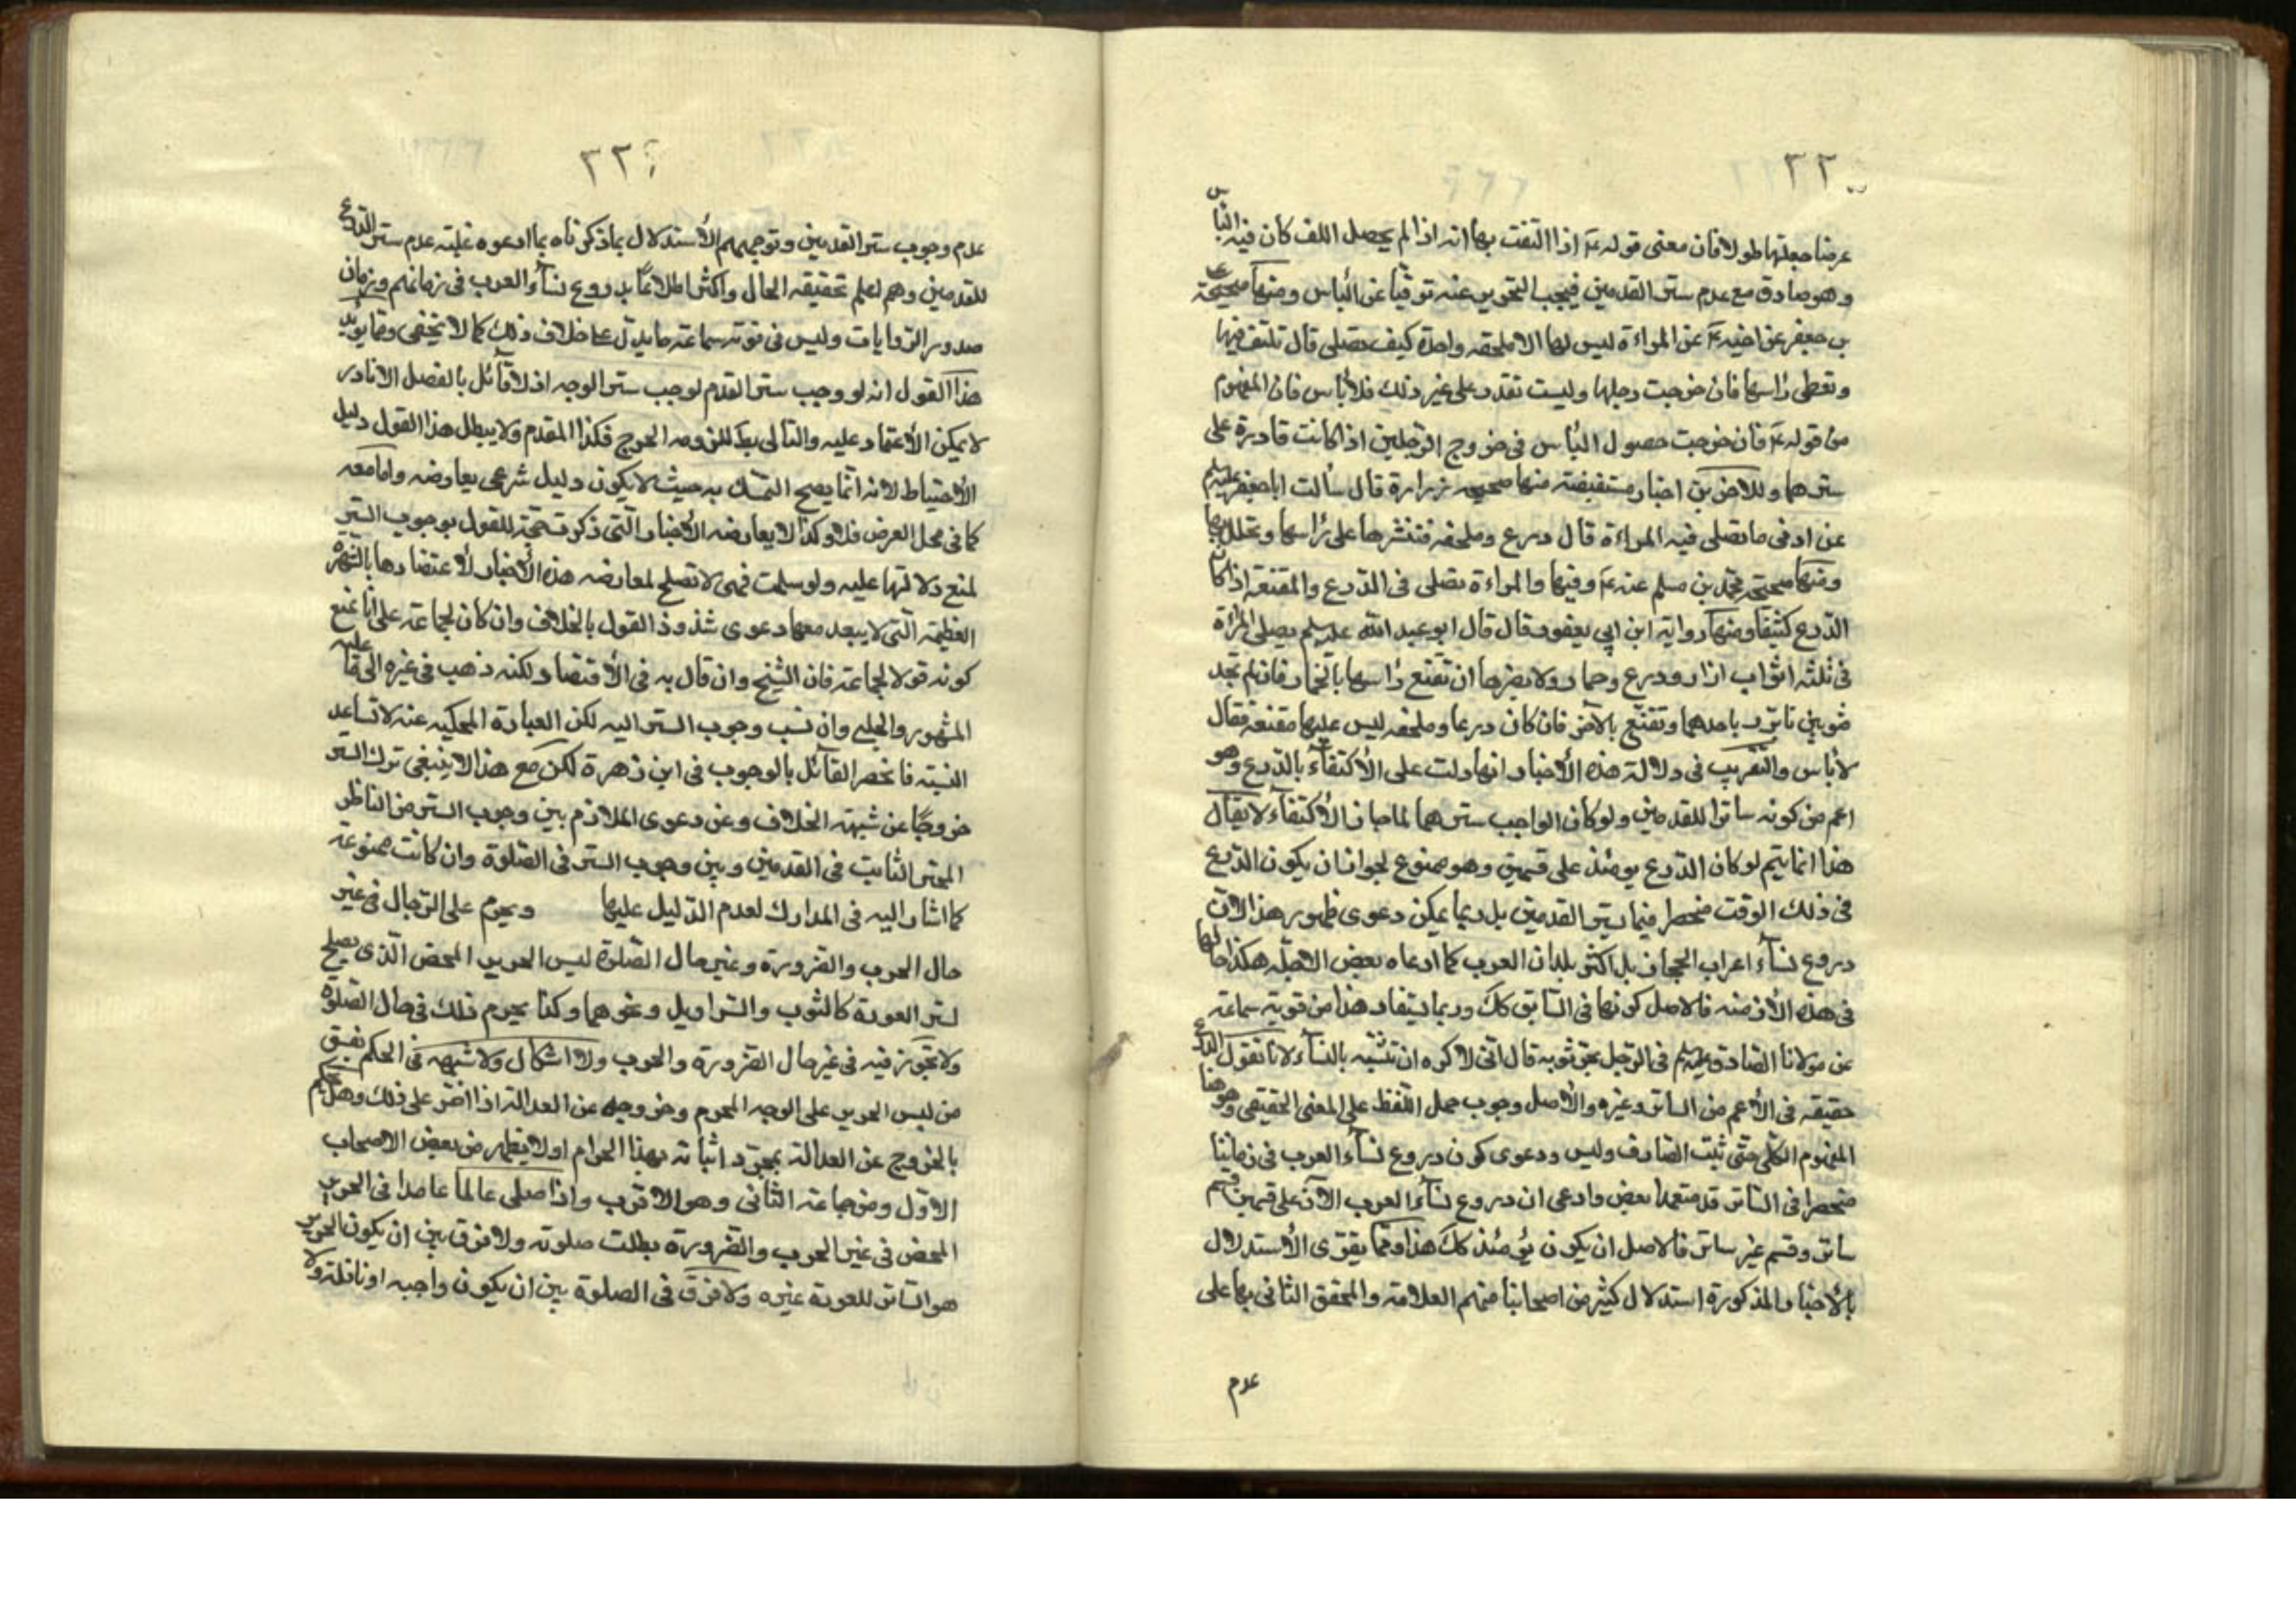 ٢٢٠
عرضا جعلتها طولا فان معنى قوله ع اذا التفت بها انه اذا لم يحصل اللف كان فيه الباس
وهو صادق مع عدم ستر القدمين فيجب التحرير عنه توقيا عن الباس ومنها صحيحة علي
بن جعفر عن اخيه ع عن المراءة ليس لها الا ملحفه واحدة كيف تصلى قال تلتف فيها
وتغطى راسها فان خرجت رجلها وليست تقدر على غير ذلك فلا باس فان المفهوم
من قوله ع فان خرجت حصول الباس فى خروج الرجلين اذا كانت قادرة على
سترهما وللاخرين اخبار مستفيضة منها صحيحه زرارة قال سألت ابا جعفر عليه السلم
عن ادنى ما تصلى فيه المراءة قال درع وملحفه فتنشرها على رأسها وتجلل بها
ومنها صحيحة محمد بن مسلم عنه ع وفيها والمراءة تصلى فى الدرع والمقنعة اذا كان
الدرع كثيفا ومنها رواية ابن ابي يعفور قال قال ابو عبد الله عليه السلم يصلى المرأة
فى ثلثه اثواب ازار ودرع وخمار ولا يضرها ان تقنع راسها بالخمار فان لم تجد
ثوبين تاتزر باحدهما وتقنع بالاخر فان كان درعا وملحفه ليس عليها مقنعة فقال
لا باس والتقريب فى دلالة هذه الأخبار انها دلت على الأكتفاء بالدرع وهو
اعم من كونه ساترا للقدمين ولو كان الواجب سترهما لما جاز الأكتفاء لا يقال
هذا انما يتم لو كان الدرع يومئذ على قسمين وهو ممنوع لجواز ان يكون الدرع
فى ذلك الوقت منحصرا فيما يستر القدمين بل ربما يمكن دعوى ظهور هذا لان
دروع نساء اعراب الحجاز بل اكثر بلدان العرب كما ادعاه بعض الاجله هكذا حالها
فى هذه الأزمنه فالاصل كونها فى السابق كك وربما يستفاد هذا من قوية سماعه
عن مولانا الصادق عليه السلم فى الرجل يجر ثوبه قال انى لاكره ان تتشبه بالنساء لانا نقول الدرع
حقيقه فى الأعم من الساتر وغيره والأصل وجوب حمل اللفظ على المعنى الحقيقى وهو هنا
المفهوم الكلى حتى ثبت الصارف وليس ودعوى كون دروع نساء العرب فى زماننا
منحصرا فى الساتر قد منعها بعض وادعى ان دروع نساء العرب الآن على قسمين قسم
ساتر وقسم غير ساتر فالاصل ان يكون يومئذ كك هذا ومما يقوى الأستدلال
بالأخبار المذكورة استدلال كثير من اصحابنا منهم العلامة والمحقق الثانى بها على
عدم
٢٢٤
عدم وجوب ستر القدمين وتوجيههم الأستدلال بما ذكرناه بما ادعوه غلبته عدم ستر الدرع
للقدمين وهم اعلم بحقيقه الحال واكثر اطلاعا بدروع نساء العرب فى زمانهم وزمان
صدور الروايات وليس فى قوته سماعة ما يدل على خلاف ذلك كما لا يخفى ومما يؤيد
هذا القول انه لو وجب ستر القدم لوجب ستر الوجه اذ لا قائل بالفصل الا نادر
لا يمكن الأعتماد عليه والتالى بط للزومه الحرج فكذا المقدم ولا يبطل هذا القول دليل
الأحتياط لانه انما يصح التمسك به حيث لا يكون دليل شرعى يعارضه واما معه
كما فى محل العرض فلا وكذا لا يعارضه الأخبار التى ذكرت حجة للقول بوجوب الستر
لمنع دلالتها عليه ولو سلمت فهى لا تصلح لمعارضه هذه الأخبار لأعتضادها بالشهرة
العظيمة التى لا يبعد معها دعوى شذوذ القول بالخلاف وان كان لجماعة على انا نمنع
كونه قولا لجماعة فان الشيخ وان قال به فى الأقتصاد لكنه ذهب فى غيره الى ما عليه
المشهور والحلبي وان نسب وجوب الستر اليه لكن العبارة المحكيه عنه لا تساعد
النسبة فانحصر القائل بالوجوب فى ابن زهرة لكن مع هذا لا ينبغى ترك الستر
خروجا عن شبهة الخلاف وعن دعوى الملازم بين وجوب الستر من الناظر
المحترم الثابت فى القدمين وبين وجوب الستر فى الصلوة وان كانت ممنوعة
كما اشار اليه فى المدارك لعدم الدليل عليها ويحرم على الرجال فى غير
حال الحرب والضرورة وغير حال الصلوة لبس الحرير المحض الذى يصلح
لستر العورة كالثوب والسراويل ونحوهما وكذا يحرم ذلك فى حال الصلوة
ولا تجوز فيه فى غير حال الضرورة والحرب ولا اشكال ولا شبهه فى الحكم بفسق
من لبس الحرير على الوجه المحرم وخروجه عن العدالة اذا اصر على ذلك وهل يحكم
بالخروج عن العدالة بمجرد اتيانه بهذا الحرام اولا يظهر من بعض الاصحاب
الاول ومن جماعة الثانى وهو الاقرب واذا صلى عالما عامدا فى الحرير
المحض فى غير الحرب والضرورة بطلت صلوته ولا فرق بين ان يكون الحرير
هو الساتر للعورة غيره ولا فرق فى الصلوة بين ان يكون واجبه او نافلة ولا